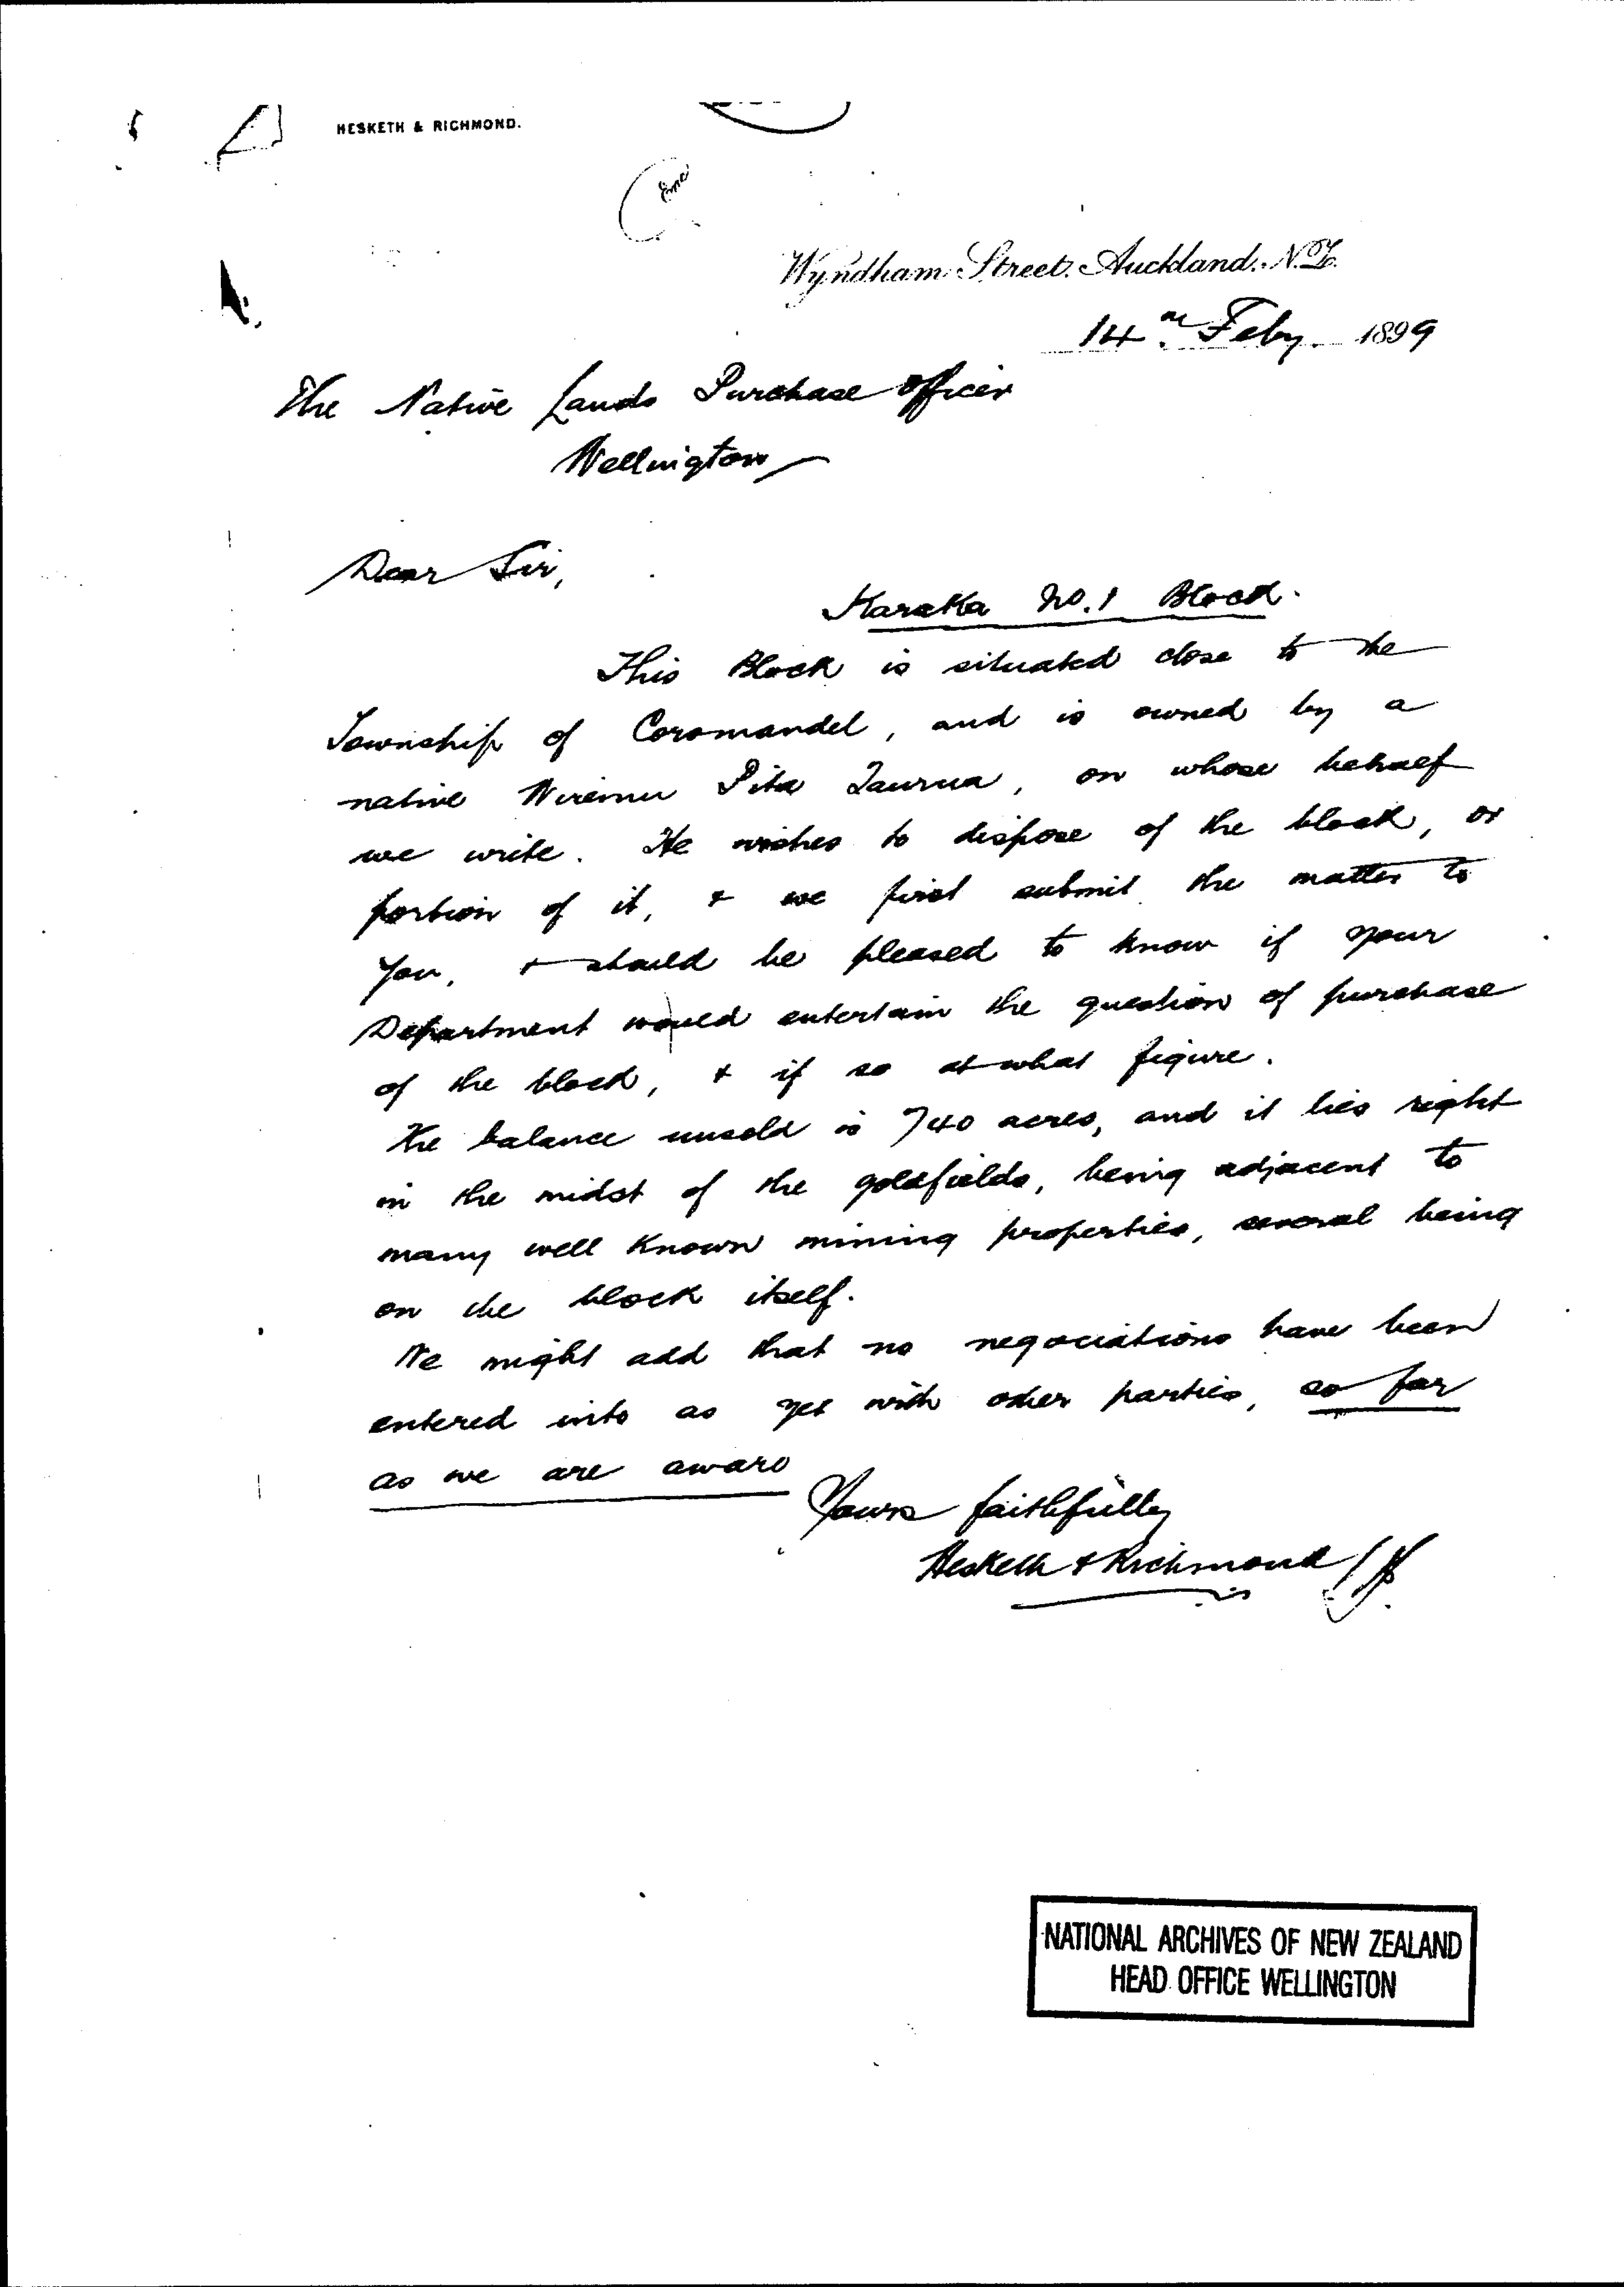 HESKETH & RICHMOND.
Wyndham Street. Auckland. N.Z.
14th Feby. 1899
The Native Lands Purchase Officer
Wellington
Dear Sir,
Karaka No. 1 Block.
This Block is situated close to the
Township of Coromandel, and is owned by a
native Wiremu Pita Taurua, on whose behalf
we write. He wishes to dispose of the block, or
portion of it, & we first submit the matter to
you, & should be pleased to know if your
Department would entertain the question of purchase
of the block, & if so at what figure.
The balance unsold is 740 acres, and it lies right
in the midst of the goldfields, being adjacent to
many well known mining properties, several being
on the block itself.
We might add that no negociations have been
entered into as yet with other parties, so far
as we are aware
Yours faithfully
Hesketh & Richmond
NATIONAL ARCHIVES OF NEW ZEALAND
HEAD OFFICE WELLINGTON